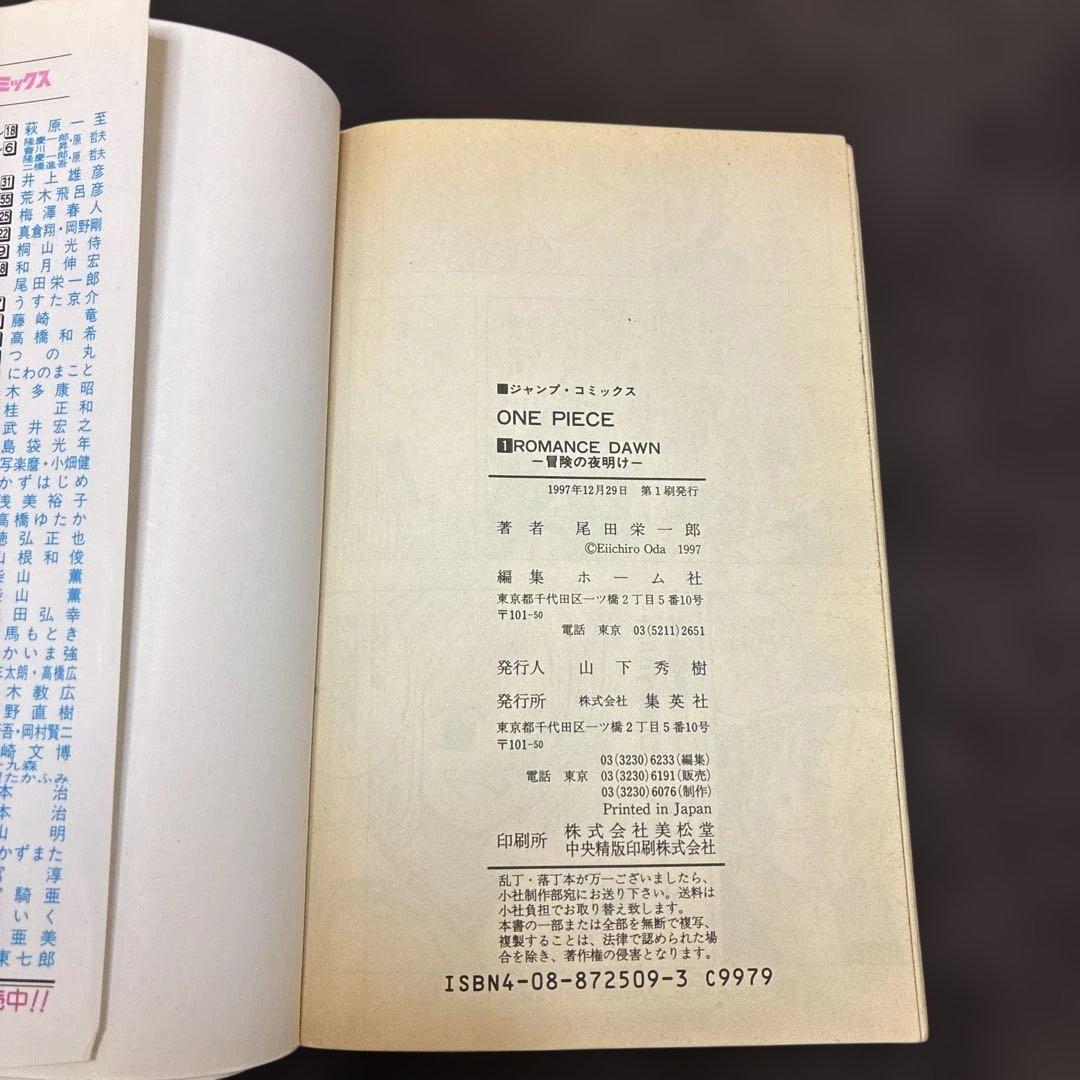 ミックス
18 萩原一至
6 隆慶一郎・原哲夫
會川昇
隆慶一郎・原哲夫
二橋進吾
31 井上雄彦
55 荒木飛呂彦
25 梅澤春人
22 真倉翔・岡野剛
9 桐山光侍
8 和月伸宏
尾田栄一郎
うすた京介
藤崎竜
高橋和希
つの丸
にわのまこと
木多康昭
桂正和
武井宏之
島袋光年
写楽麿・小畑健
かずはじめ
浅美裕子
高橋ゆたか
徳弘正也
山根和俊
山薫
山薫
田弘幸
馬もとき
かいま強
三太朗・高橋広
木教広
野直樹
吾・岡村賢二
崎文博
十九森
たかふみ
本治
本治
山明
かずまた
宮淳
騎亜
いく
亜美
東七郎
売中!!
■ジャンプ・コミックス
ONE PIECE
1 ROMANCE DAWN
―冒険の夜明け―
1997年12月29日 第1刷発行
著者 尾田栄一郎
©Eiichiro Oda 1997
編集 ホーム社
東京都千代田区一ツ橋2丁目5番10号
〒101-50
電話 東京 03(5211)2651
発行人 山下秀樹
発行所 株式会社 集英社
東京都千代田区一ツ橋2丁目5番10号
〒101-50
03(3230)6233(編集)
電話 東京 03(3230)6191(販売)
03(3230)6076(制作)
Printed in Japan
印刷所 株式会社美松堂
中央精版印刷株式会社
乱丁・落丁本が万一ございましたら、
小社制作部宛にお送り下さい。送料は
小社負担でお取り替え致します。
本書の一部または全部を無断で複写、
複製することは、法律で認められた場
合を除き、著作権の侵害となります。
ISBN4-08-872509-3 C9979